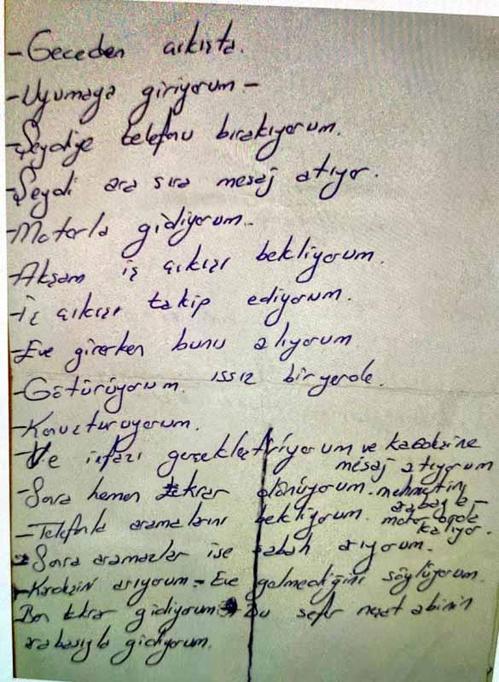 -Geceden çıkışta.
-Uyumaya giriyorum-
-Seydiye telefonu bırakıyorum.
-Seydi ara sıra mesaj atıyor.
-Motorla gidiyorum.
-Akşam iş çıkışı bekliyorum.
-iş çıkışı takip ediyorum.
-Eve girerken bunu alıyorum
-Götürüyorum. ıssız bir yerde.
-Konusturuyorum.
-Ve infazı gerçekleştiriyorum ve kardeşine
mesaj atıyorum
-Sonra hemen tekrar dönüyorum. mehmetin
arabayla-
-Telefonla aramalarını bekliyorum. motor orada
kalıyor.
-Sonra aramazlar ise sabah arıyorum.
-Kardeşin arıyorum-Eve gelmediğini söylüyorum.
Ben tekrar gidiyorum Bu sefer neşet abinin
arabasıyla gidiyorum.